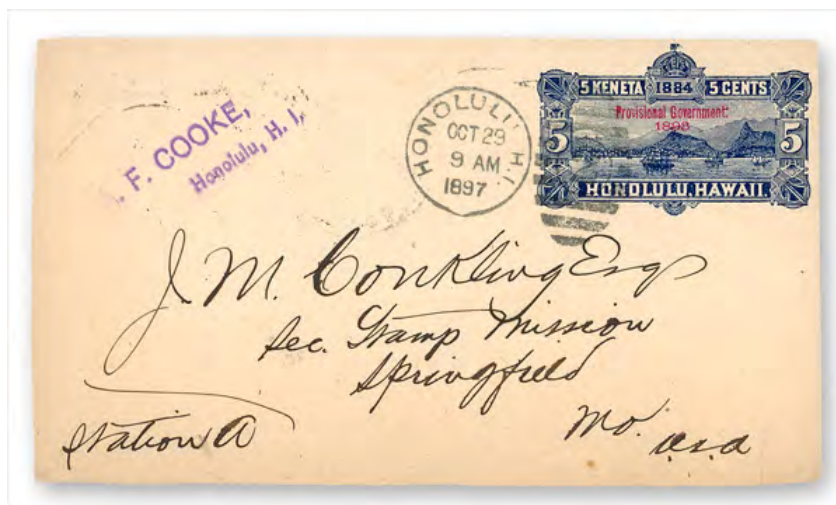 . F. COOKE,
Honolulu, H. I.
HONOLULU H.I.
OCT 29
9 AM
1897
5 KENETA 1884 5 CENTS
Provisional Government
1893
5 5
HONOLULU, HAWAII.
J. M. Conkling Esq
Sec. Stamp Mission
Springfield
Mo. U.S.A
Station A